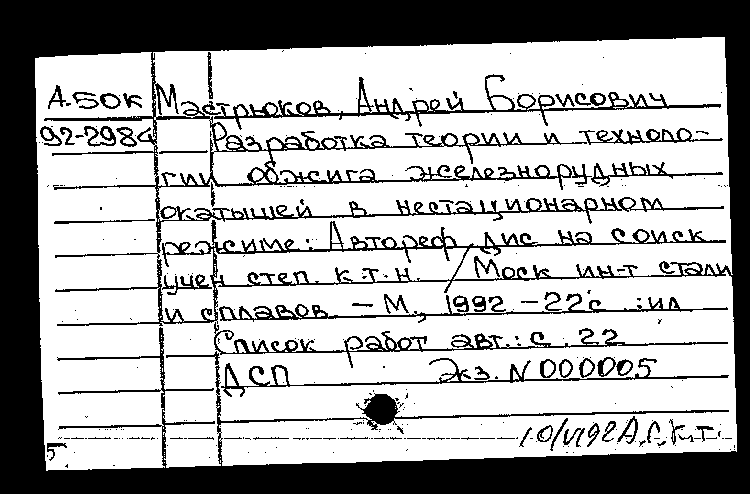 А.50К Мастрюков, Андрей Борисович
92-2984 Разработка теории и техноло-
гии обжига железнорудных
окатышей в нестационарном
режиме: Автореф. дис на соиск
учен степ. к.т.н. / Моск ин-т стали
и сплавов - М., 1992 - 22 с :ил
Список работ авт.: с. 22
ДСП Экз. N 000005
10/VI92 А.С.К.Т.
5